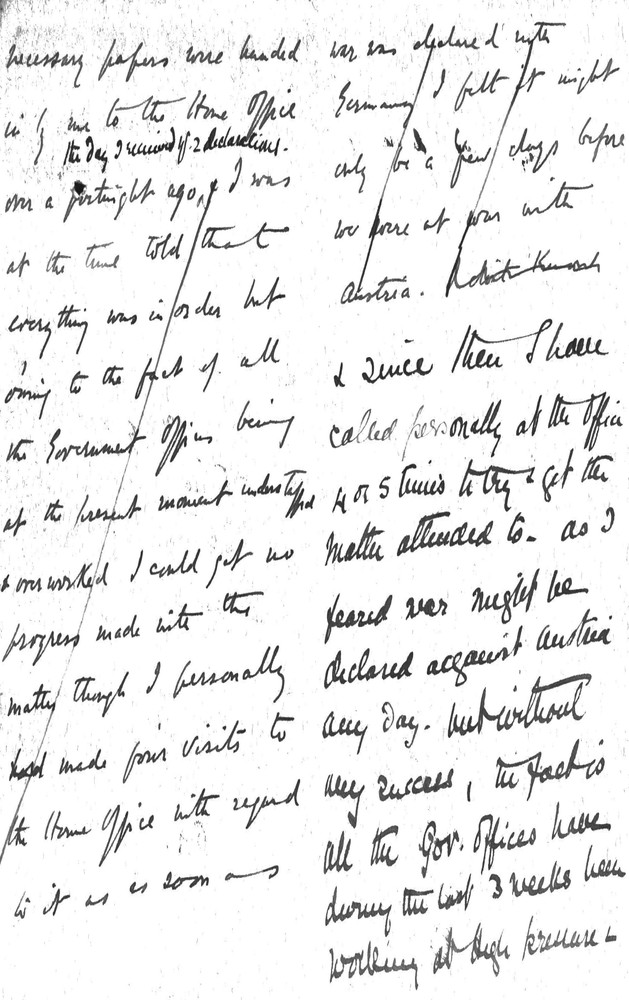 necessary papers were handed
in by me to the Home Office
the day I received yr. 2 declarations.
over a fortnight ago, & I was
at the time told that
everything was in order but
owing to the fact of all
the Government Offices being
at the present moment understaffed
& overworked I could get no
progress made with the
matter though I personally
had made four visits to
the Home Office with regard
to it as as soon as
war was declared with
Germany I felt it might
only be a few days before
we were at war with
Austria.
& since then I have
called personally at the Office
4 or 5 times to try & get the
matter attended to - as I
feared war might be
declared against Austria
any day - but without
any success, the fact is
all the Gov. Offices have
during the last 3 weeks been
working at high pressure &